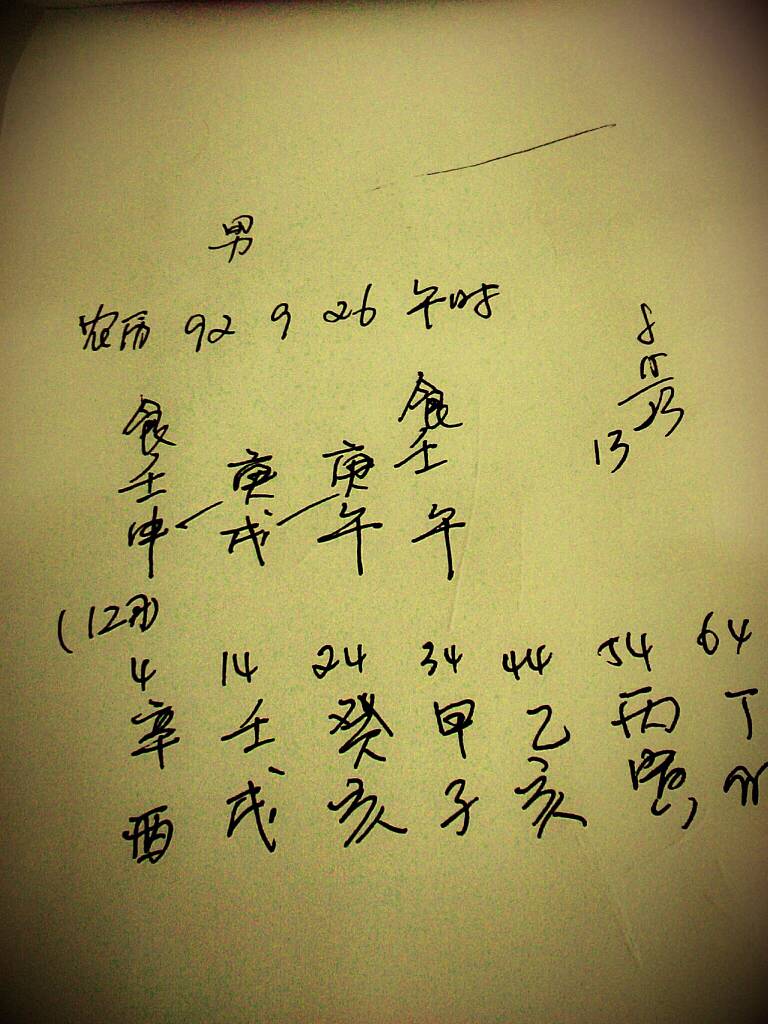 男
农历 92 9 26 午时
食 食
壬 庚 庚 壬
申 戌 午 午
13
4 14 24 34 44 54 64
辛 壬 癸 甲 乙 丙 丁
酉 戌 亥 子 亥 寅